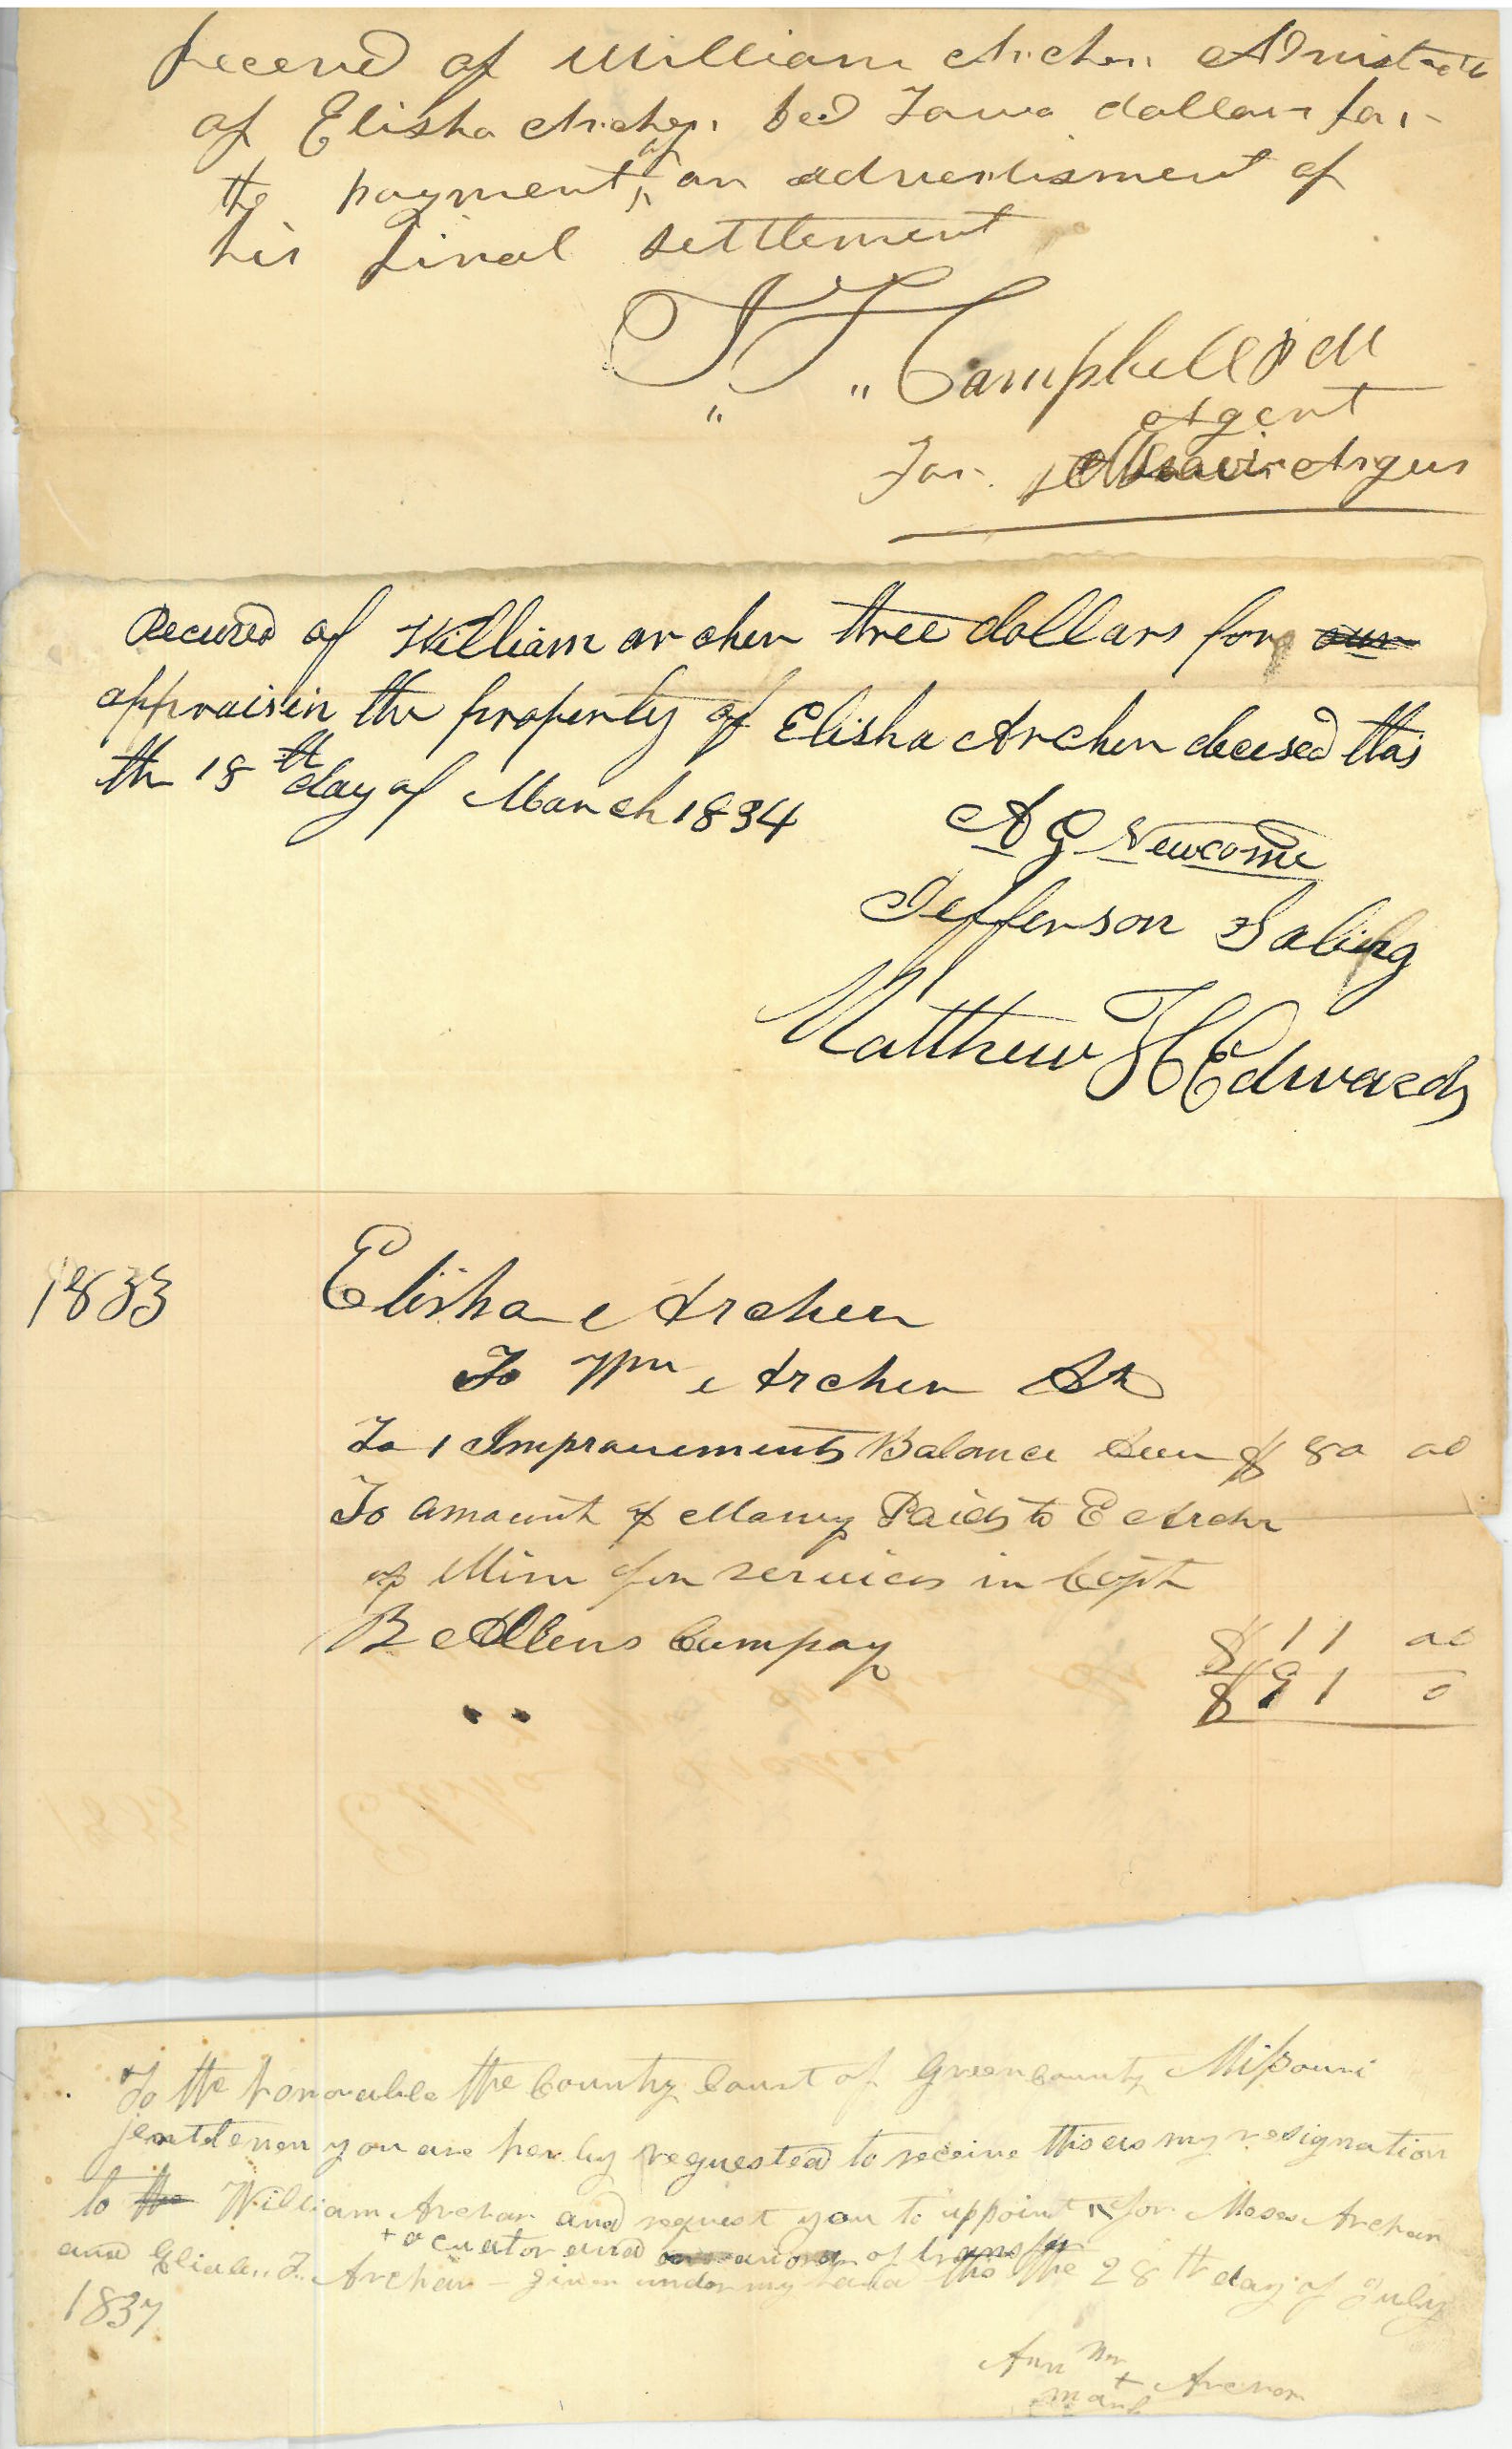 Receved of William Archer Admistrat
of Elisha Archer Ded Fowr dollars for
the payment of an advertisment of
his final settlement
J F Campbell P M
Agent
For Argus
Receved of William archer three dollars for our
appraisin the property of Elisha Archer decesed this
the 18th day of March 1834
A G Newcome
Jefferson
Matthew H Edwards
1833
Elisha Archer
To Wm Archer Dr
To 1 Improvements Balance Due $ 80 00
To amount of Mony Paid to E Archr
of Mine for services in Capt
B Allens Compay
$ 11 00
$ 91 0
To the honorable the County Court of Green County Missouri
jentlemen you are herby requested to receive this as my resignation
to the William Archer and request you to appoint for Moses Archer
cutor and of
and Archer given under my hand this the 28th day of July
1837
Ann her
+ Archer
mark